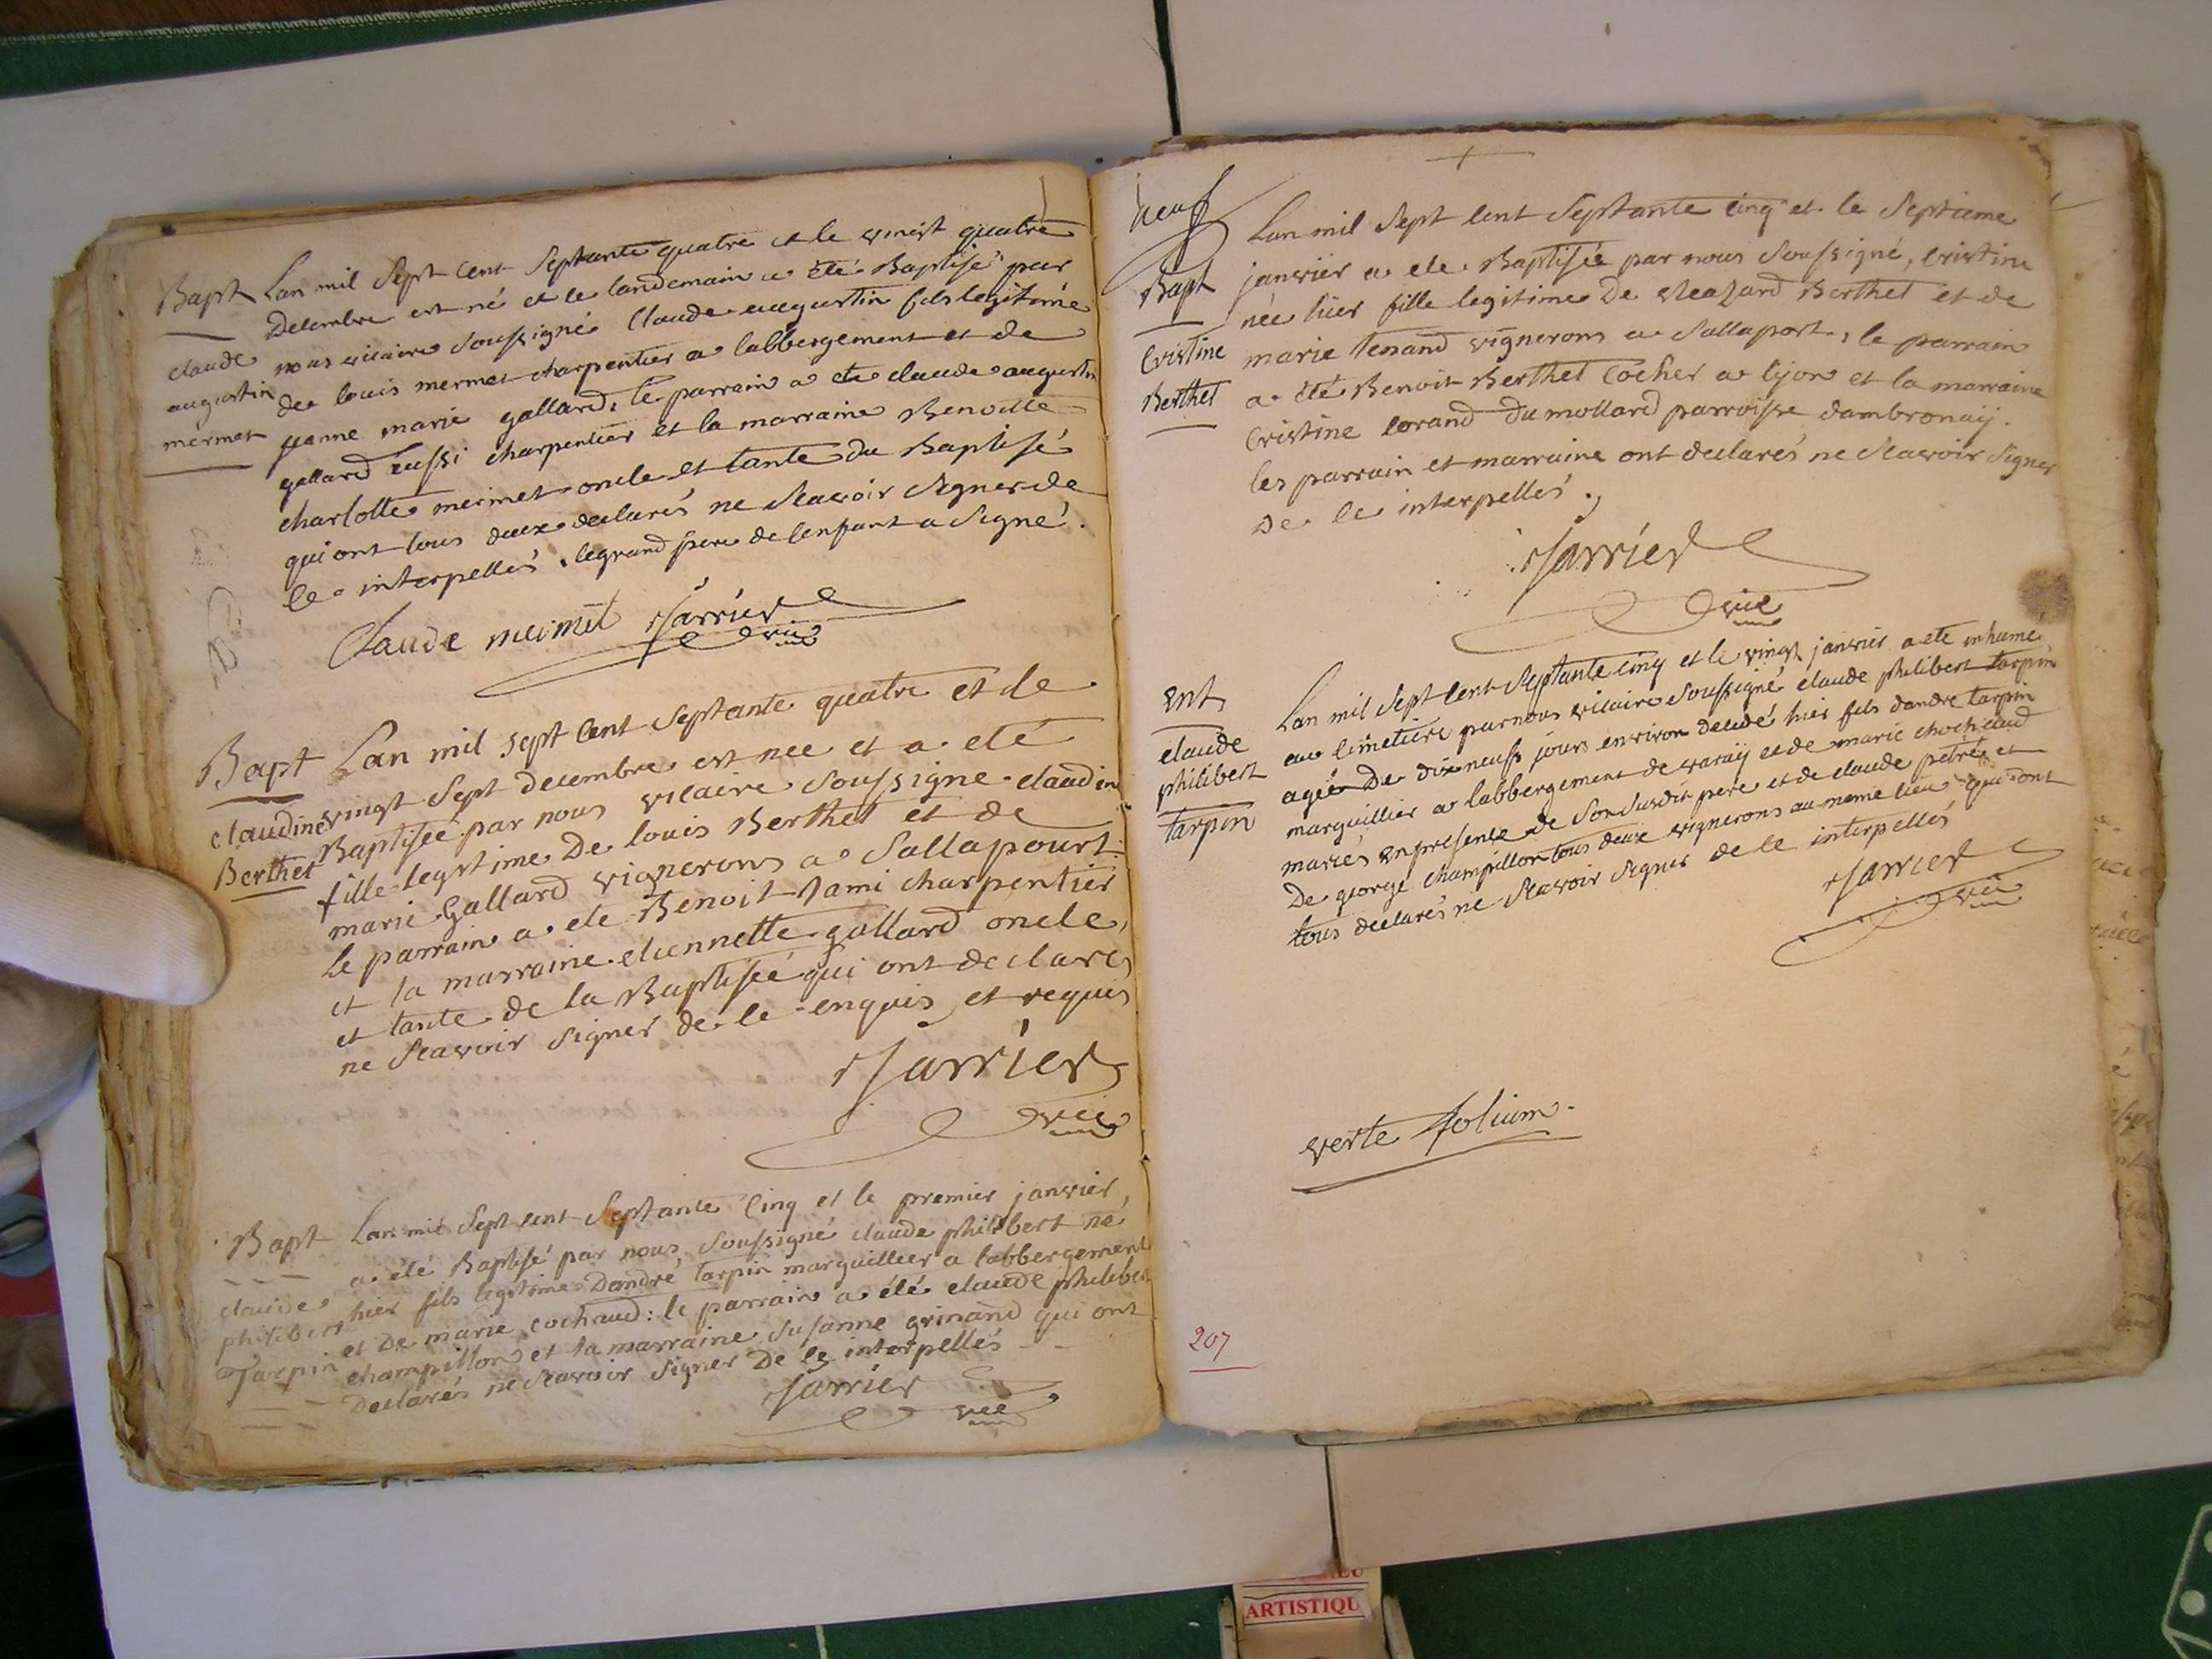 Bapt
claude
augustin
mermet
Lan mil Sept cent Septante quatre et le vingt quatre
Decembre est né et le landemain a été Baptisé par
nous vicaire soussigné Claude augustin fils legitime
de louis mermet charpentier a labbergement et de
jeanne marie gallard, le parrain a ete claude augustin
gallard aussi charpentier et la marraine Benoitte
charlotte mermet oncle et tante du Baptisé
qui ont tous deux declarés ne Scavoir Signer de
ce interpellés. le grand pere de lenfant a Signé.
Claude mermet Jarrier
vic
Bapt
claudine
Berthet
Lan mil sept cent Septante quatre et le
vingt Sept decembre est nee et a eté
Baptisée par nous vicaire Soussigne claudine
fille legitime De louis Berthet et de
marie Gallard vignerons a Sallapourt
Le parrain a ete Benoit Jami charpentier
et la marraine etiennette gallard oncle,
et tante de la Baptisée qui ont declarés
ne Scavoir signer de ce enquis et requis
Jarrier
vic
Bapt
claude
philibert
Tarpin
Lan mil Sept cent Septante Cinq et le premier janvier,
a été Baptisé par nous Soussigné claude philibert né
hier fils legitime Dandré tarpin marguillier a labbergement
et De marie cochaud: le parrain a été claude philibert
champillon et la marraine Susanne grinand qui ont
Declarés ne Scavoir Signer De ce interpellés
Jarrier
vic
neuf
Bapt
Cristine
Berthet
Lan mil Sept Cent Septante Cinq et le Septieme
janvier a ete Baptisée par nous Soussigné, Cristine
née hier fille legitime De Berthet et de
marie tenand vignerons a Sallaport, le parrain
a été Benoit Berthet Cocher a lyon et la marraine
Cristine corand du mollard parroisse dambronaij.
les parrain et marraine ont declarés ne Scavoir Signer
De ce interpellés.
Jarrier
vic
ent
claude
philibert
tarpin
Lan mil Sept Cent Septante cinq et le vingt janvier a ete inhumé
au Cimetiere par nous vicaire Soussigné claude philibert tarpin
agée De dix neuf jours environ decedé hier fils dandre tarpin
marguillier a labbergement de varaÿ et de marie chochaud
mariés en presence de Son Susdit pere et de claude et
De george champillon tous deux vignerons au meme lieu qui ont
tous declarés ne Scavoir Signer de ce interpellés
Jarrier
vic
verte folium.
207
ARTISTIQU